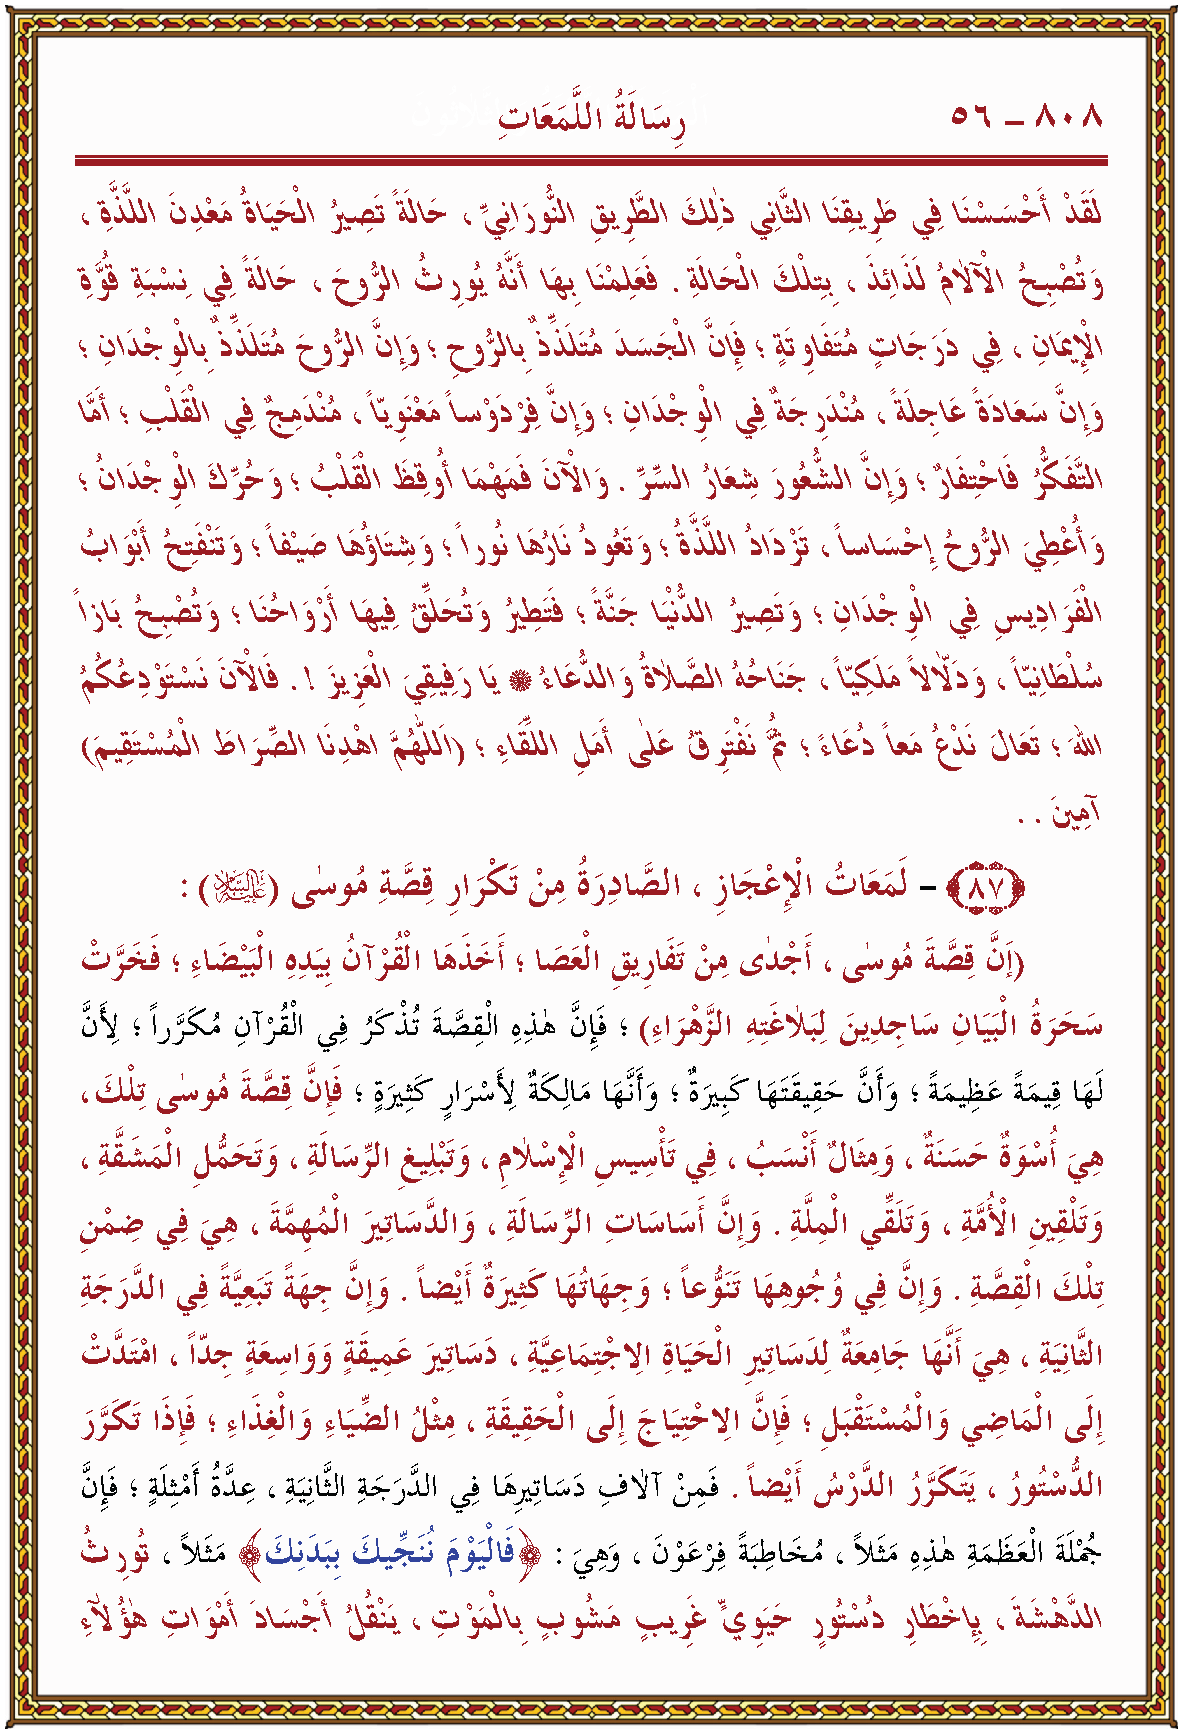 ٨٠٨ ـ ٥٦ رِسَالَةُ اللَّمَعَاتِ
لَقَدْ أَحْسَسْنَا فِي طَرِيقِنَا الثَّانِي ذٰلِكَ الطَّرِيقِ النُّورَانِيِّ ، حَالَةً تَصِيرُ الْحَيَاةُ مَعْدِنَ اللَّذَّةِ ،
وَتُصْبِحُ الْآلاٰمُ لَذَائِذَ ، بِتِلْكَ الْحَالَةِ . فَعَلِمْنَا بِهَا أَنَّهُ يُورِثُ الرُّوحَ ، حَالَةً فِي نِسْبَةِ قُوَّةِ
الْإِيمَانِ ، فِي دَرَجَاتٍ مُتَفَاوِتَةٍ ؛ فَإِنَّ الْجَسَدَ مُتَلَذِّذٌ بِالرُّوحِ ؛ وَإِنَّ الرُّوحَ مُتَلَذِّذٌ بِالْوِجْدَانِ ؛
وَإِنَّ سَعَادَةً عَاجِلَةً ، مُنْدَرِجَةٌ فِي الْوِجْدَانِ ؛ وَإِنَّ فِرْدَوْساً مَعْنَوِيّاً ، مُنْدَمِجٌ فِي الْقَلْبِ ؛ أَمَّا
التَّفَكُّرُ فَاحْتِفَارٌ ؛ وَإِنَّ الشُّعُورَ شِعَارُ السِّرِّ . وَالْآنَ فَمَهْمَا أُوقِظَ الْقَلْبُ ؛ وَحُرِّكَ الْوِجْدَانُ ؛
وَأُعْطِيَ الرُّوحُ إِحْسَاساً ، تَزْدَادُ اللَّذَّةُ ؛ وَتَعُودُ نَارُهَا نُوراً ؛ وَشِتَاؤُهَا صَيْفاً ؛ وَتَنْفَتِحُ أَبْوَابُ
الْفَرَادِيسِ فِي الْوِجْدَانِ ؛ وَتَصِيرُ الدُّنْيَا جَنَّةً ؛ فَتَطِيرُ وَتُحَلِّقُ فِيهَا أَرْوَاحُنَا ؛ وَتُصْبِحُ بَازاً
سُلْطَانِيّاً ، وَدَلاَّلاً مَلَكِيّاً ، جَنَاحُهُ الصَّلاٰةُ وَالدُّعَاءُ ۞ يَا رَفِيقِيَ الْعَزِيزَ ! . فَالْآنَ نَسْتَوْدِعُكُمُ
اللهَ ؛ تَعَالَ نَدْعُ مَعاً دُعَاءً ؛ ثُمَّ نَفْتَرِقُ عَلٰى أَمَلِ اللِّقَاءِ ؛ (اَللّٰهُمَّ اهْدِنَا الصِّرَاطَ الْمُسْتَقِيمَ)
آمِينَ . .
﴿٨٧﴾ - لَمَعَاتُ الْإِعْجَازِ ، الصَّادِرَةُ مِنْ تَكْرَارِ قِصَّةِ مُوسٰى (عَلَيْهِ السَّلاٰمُ) :
(إَنَّ قِصَّةَ مُوسٰى ، أَجْدٰى مِنْ تَفَارِيقِ الْعَصَا ؛ أَخَذَهَا الْقُرْآنُ بِيَدِهِ الْبَيْضَاءِ ؛ فَخَرَّتْ
سَحَرَةُ الْبَيَانِ سَاجِدِينَ لِبَلاٰغَتِهِ الزَّهْرَاءِ) ؛ فَإِنَّ هٰذِهِ الْقِصَّةَ تُذْكَرُ فِي الْقُرْآنِ مُكَرَّراً ؛ لِأَنَّ
لَهَا قِيمَةً عَظِيمَةً ؛ وَأَنَّ حَقِيقَتَهَا كَبِيرَةٌ ؛ وَأَنَّهَا مَالِكَةٌ لِأَسْرَارٍ كَثِيرَةٍ ؛ فَإِنَّ قِصَّةَ مُوسٰى تِلْكَ ،
هِيَ أُسْوَةٌ حَسَنَةٌ ، وَمِثَالٌ أَنْسَبُ ، فِي تَأْسِيسِ الْإِسْلاٰمِ ، وَتَبْلِيغِ الرِّسَالَةِ ، وَتَحَمُّلِ الْمَشَقَّةِ ،
وَتَلْقِينِ الْأُمَّةِ ، وَتَلَقِّي الْمِلَّةِ . وَإِنَّ أَسَاسَاتِ الرِّسَالَةِ ، وَالدَّسَاتِيرَ الْمُهِمَّةَ ، هِيَ فِي ضِمْنِ
تِلْكَ الْقِصَّةِ . وَإِنَّ فِي وُجُوهِهَا تَنَوُّعاً ؛ وَجِهَاتُهَا كَثِيرَةٌ أَيْضاً . وَإِنَّ جِهَةً تَبَعِيَّةً فِي الدَّرَجَةِ
الثَّانِيَةِ ، هِيَ أَنَّهَا جَامِعَةٌ لِدَسَاتِيرِ الْحَيَاةِ الاِجْتِمَاعِيَّةِ ، دَسَاتِيرَ عَمِيقَةٍ وَوَاسِعَةٍ جِدّاً ، امْتَدَّتْ
إِلَى الْمَاضِي وَالْمُسْتَقْبَلِ ؛ فَإِنَّ الاِحْتِيَاجَ إِلَى الْحَقِيقَةِ ، مِثْلُ الضِّيَاءِ وَالْغِذَاءِ ؛ فَإِذَا تَكَرَّرَ
الدُّسْتُورُ ، يَتَكَرَّرُ الدَّرْسُ أَيْضاً . فَمِنْ آلاٰفِ دَسَاتِيرِهَا فِي الدَّرَجَةِ الثَّانِيَةِ ، عِدَّةُ أَمْثِلَةٍ ؛ فَإِنَّ
جُمْلَةَ الْعَظَمَةِ هٰذِهِ مَثَلاً ، مُخَاطِبَةً فِرْعَوْنَ ، وَهِيَ : ﴿فَالْيَوْمَ نُنَجِّيكَ بِبَدَنِكَ﴾ مَثَلاً ، تُورِثُ
الدَّهْشَةَ ، بِإِخْطَارِ دُسْتُورٍ حَيَوِيٍّ غَرِيبٍ مَشُوبٍ بِالْمَوْتِ ، يَنْقُلُ أَجْسَادَ أَمْوَاتِ هٰؤُلَاءِ